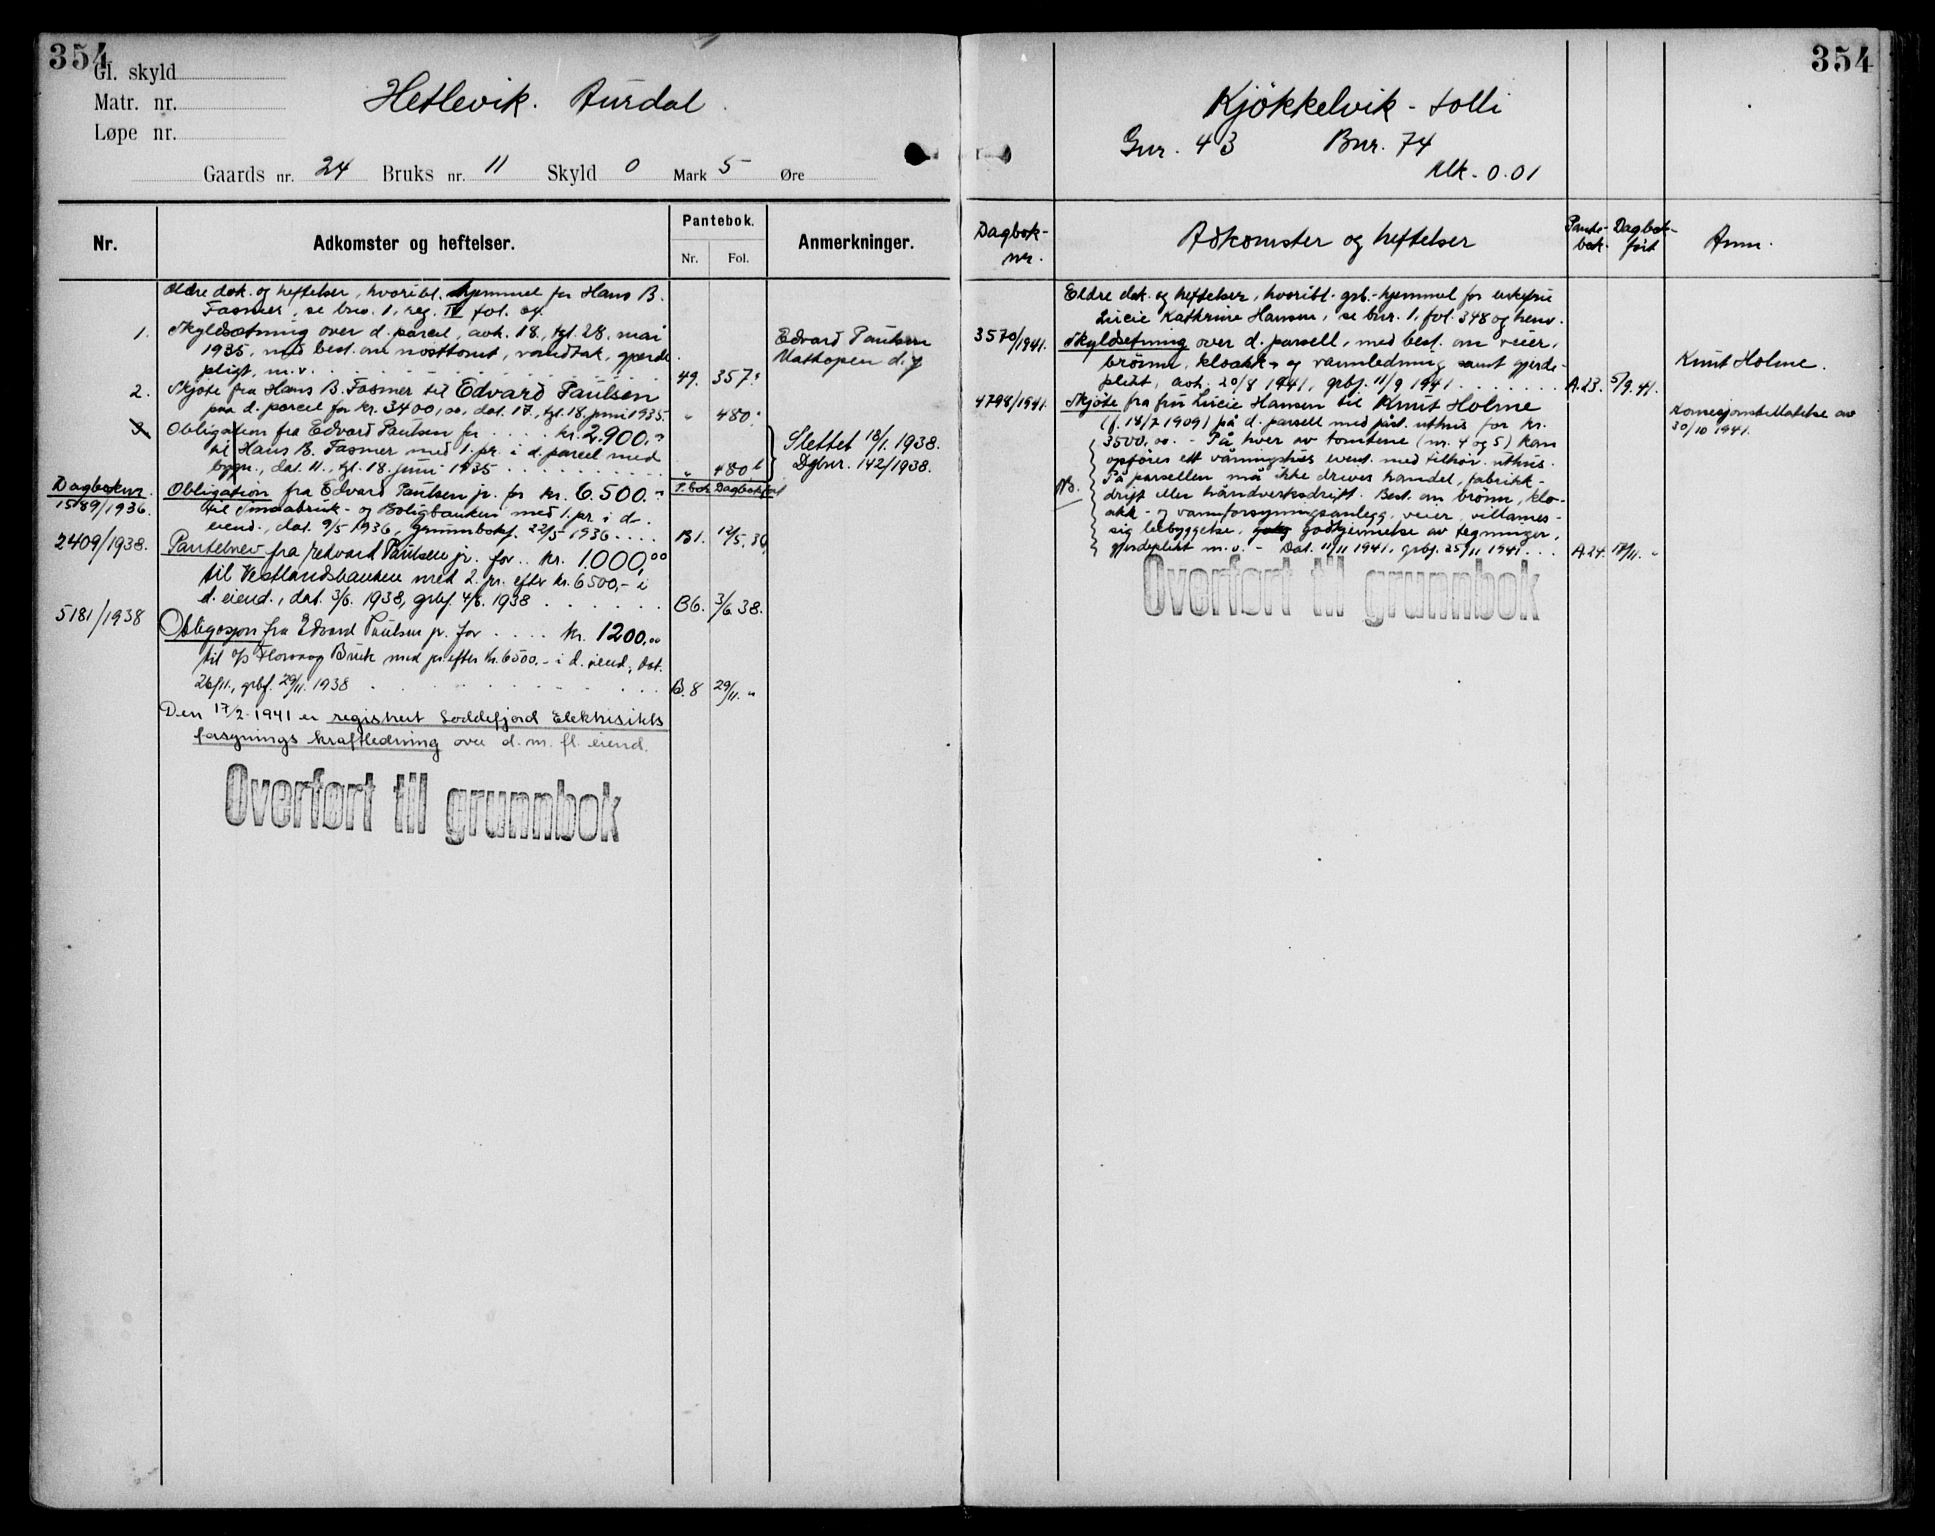 354
Gl. skyld
Matr. nr.
Løpe nr.
Hetlevik. Aurdal.
Gaards nr. 24 Bruks nr. 11 Skyld 0 Mark 5 Øre
Nr. Adkomster og heftelser. Pantebok. Anmerkninger.
Nr. Fol.
Ældre dok. og heftelser, hvoribl. hjemmel for Hans B.
Fasmer, se brno. 1, reg. IV fol.
1. Skyldsætning over d. parcel, avh. 18., tgl. 28. mai
1935, med best. om nosttomt, vandtak, gjerde
pligt, m.v. 49. 357.
Edvard Paulsen
Mathopen d.y
2. Skjøte fra Hans B. Fasmer til Edvard Paulsen
paa d. parcel for kr. 3400,00, dat. 17., tgl. 18. juni 1935 " 480.
3. Obligation fra Edvard Paulsen for .... kr. 2.900.-
til Hans B. Fasmer med 1. pr. i d. parcel med
bygn., dat. 11., tgl. 18. juni 1935 " 480 b
Slettet 18/1. 1938.
Dgbnr. 142/1938.
Dagboknr. P.bok Dagbokført
1589/1936. Obligation fra Edvard Paulsen jr. for kr. 6.500.-
til Småbruk- og Boligbanken med 1. pr. i d.
eiend., dat. 9/5 1936, grunnbokf. 22/5 1936 .... B1. 12/5. 36
2409/1938. Pantebrev fra Edvard Paulsen jr. for .. kr. 1.000,00
til Vestlandsbanken med 2. pr. efter kr. 6500,- i
d. eiend., dat. 3/6. 1938, grbf. 4/6. 1938 B6. 3/6 38.
5181/1938 Obligasjon fra Edvard Paulsen jr. for .... kr. 1200.00
til A/S Florvaag Bruk med pr. efter kr. 6500.- i d. eiend., dat.
26/11., grbf. 29/11. 1938 B.8 29/11. "
Den 17/2-1941 er registrert Loddefjord Elektrisitets
forsynings kraftledning over d. m. fl. eiend.
Overført til grunnbok
354
Kjøkkelvik - Solli
Gnr. 43 Bnr. 74
Mk. 0.01
Dagbok-
nr. Adkomster og heftelser Pante-
bok. Dagbok-
ført Anm.
Eldre dok. og heftelser, hvoribl. grb.-hjemmel for enkefrue
Lucie Kathrine Hansen, se bnr. 1, fol. 348 og henv.
3570/1941. Skyldsetning over d. parsell, med best. om veier,
brønn, kloakk- og vannledning samt gjerde-
plikt, avh. 20/8 1941, grbf. 11/9 1941 A.23. 5/9. 41.
Knut Holme.
4798/1941. Skjøte fra fru Lucie Hansen til Knut Holme
(f. 18/7 1909) på d. parsell med påst. uthus for kr.
3500,00. - På hver av tomtene (nr. 4 og 5) kan
oppføres ett våningshus event. med tilhør. uthus.
På parsellen må ikke drives handel, fabrikk-
drift eller håndverksdrift. Best. om brønn, klo-
akk- og vannforsyningsanlegg, veier, villames-
sig bebyggelse, godkjennelse av tegninger,
gjerdeplikt m.v. - Dat. 11/11 1941, grbf. 25/11 1941 ... A.24. 17/11. "
NB.
Konsesjonstillatelse av
30/10 1941.
Overført til grunnbok